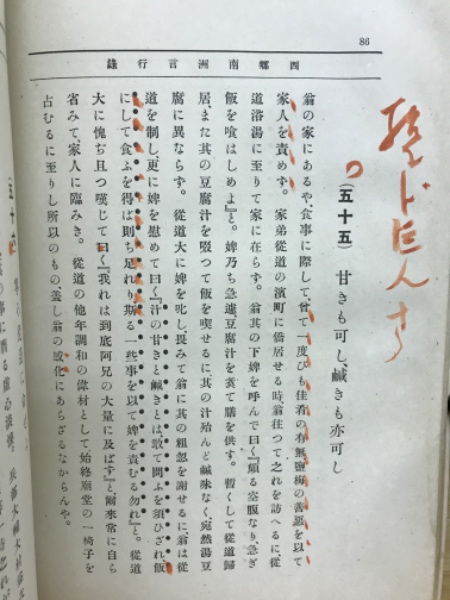 86
西郷南洲言行録
(五十五) 甘きも可し、鹹きも亦可し
翁の家にあるや、食事に際して、曾て一度びも佳肴の有無鹽梅の善惡を以て
家人を責めず。家弟從道の濱町に僑居せる時、翁往つて之れを訪へるに、從
道浴湯に至りて家に在らず。翁其の下婢を呼んで曰く『頗る空腹なり、急ぎ
飯を喰はしめよ』と。婢乃ち急遽豆腐汁を煑て膳を供す。暫くして從道歸
居、また其の豆腐汁を啜つて飯を喫せるに其の汁殆んど鹹味なく、宛然湯豆
腐に異ならず。從道大に婢を叱し、畏みて翁に其の粗忽を謝せるに、翁は從
道を制し、更に婢を慰めて曰く『汁の甘きと鹹きとは、敢て問ふを須ひざれ、飯
にして食ふを得ば則ち足れり、斯る一些事を以て婢を責むる勿れ』と。從道
大に愧ぢ且つ嘆じて曰く『我れは到底阿兄の大量に及ばず』と、爾來常に自ら
省みて、家人に臨みき。從道の他年調和の偉材として始終廟堂の一椅子を
占むるに至りし所以のもの、蓋し翁の感化にあらざるなからんや。